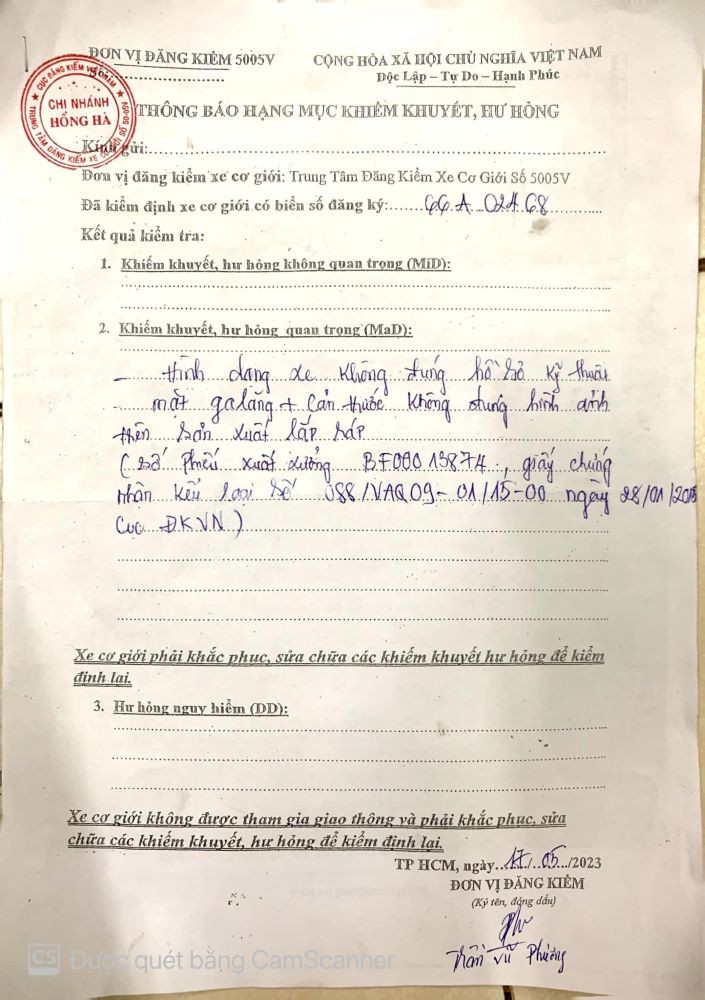 ĐƠN VỊ ĐĂNG KIỂM 5005V
CỘNG HÒA XÃ HỘI CHỦ NGHĨA VIỆT NAM
Số:
Độc Lập – Tự Do – Hạnh Phúc
CỤC ĐĂNG KIỂM VIỆT NAM
CHI NHÁNH
HỒNG HÀ
THÔNG BÁO HẠNG MỤC KHIẾM KHUYẾT, HƯ HỎNG
Kính gửi:
Đơn vị đăng kiểm xe cơ giới: Trung Tâm Đăng Kiểm Xe Cơ Giới Số 5005V
Đã kiểm định xe cơ giới có biển số đăng ký: 66A 024 68
Kết quả kiểm tra:
1. Khiếm khuyết, hư hỏng không quan trọng (MiD):
2. Khiếm khuyết, hư hỏng quan trọng (MaD):
– Hình dạng xe không đúng hồ sơ kỹ thuật
mặt galăng + Cản trước không đúng hình ảnh
trên sản xuất lắp ráp
(số phiếu xuất xưởng BF00013874, giấy chứng
nhận kiểu loại số 088/VAQ09-01/15-00 ngày 28/01/2015
Cục ĐKVN)
Xe cơ giới phải khắc phục, sửa chữa các khiếm khuyết hư hỏng để kiểm
định lại.
3. Hư hỏng nguy hiểm (DD):
Xe cơ giới không được tham gia giao thông và phải khắc phục, sửa
chữa các khiếm khuyết, hư hỏng để kiểm định lại.
TP HCM, ngày 17/05/2023
ĐƠN VỊ ĐĂNG KIỂM
(Ký tên, đóng dấu)
Trần Vũ Phương
CS Được quét bằng CamScanner